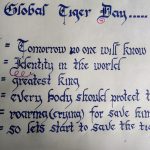 Global Tiger Day.....
= Tomorrow no one will know
= Identity in the world
= greatest king
= Every body should protect t
= roaring(crying) for save him
= so lets start to save the tig